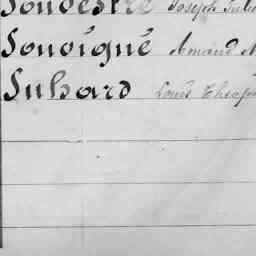 Soudestre Joseph Julien
Souoigné Armand
Suhard Louis Théop